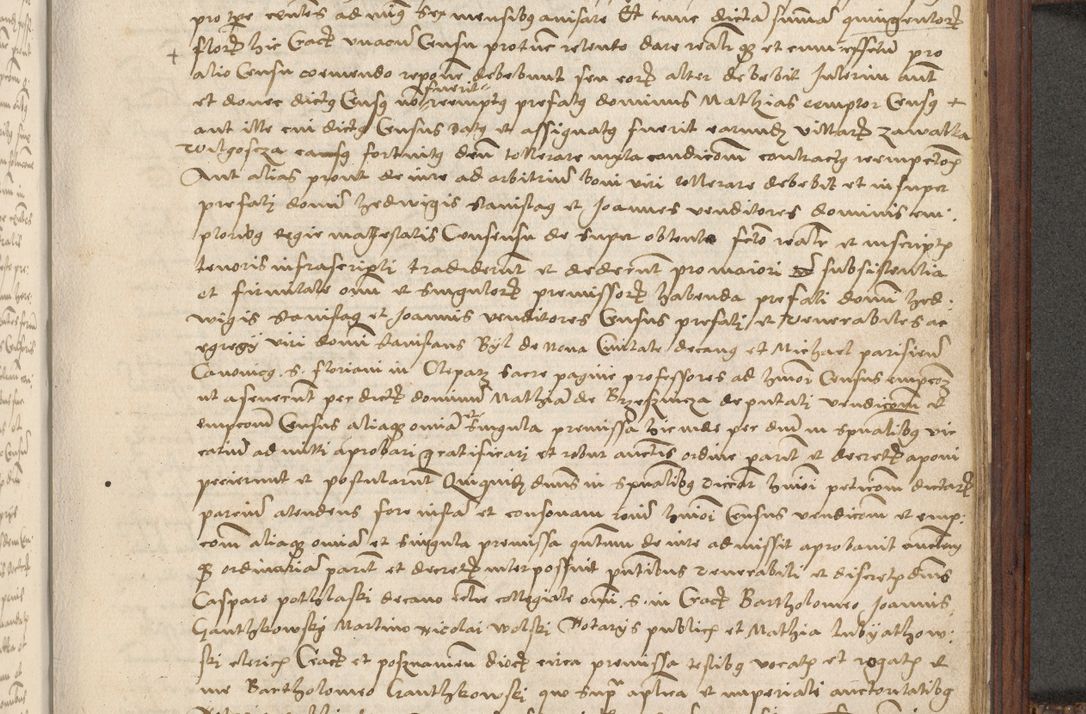 pro tpe centes ad minus sex mensibus avisare Et tunc dictam summam quingentorum
floren hic Crac unacum Censu pro tunc retento dare realiter et cum effectu pro
alio Censu coemendo reponere debebunt seu eorum alter debebit Interim aut
fuerit
et donec dictus Census non reemptus prefatus dominus Mathias emptor Census +
aut ille cui dictus Census datus et assignatus fuerit earundem villarum Zawalka
Wilgoscza casus fortuitos debet tollerare iuxta condicionem contractus reempcionis
Aut alias prout de iure ad arbitrium boni viri tollerare debebit et insuper
prefati domini Hedwigis Stanislaus et Joannes venditores dominis em
ptoribus regie maiestatis Consensu de super obtento facto realiter et inscripto
tenoris infrascripti tradiderunt et dederunt pro maiori subsistentia
et firmitate omnium et singulorum premissorum habenda prefati domini Hed
wigis Stanislaus et Joannis venditores Census prefati et Venerabiles ac
egregy viri domini Stanislaus Byl de nova Civitate decanus et Michael parisiensis
Canonicus S. Floriani in Clepar sacre pagine professores ad huiusmodi Census empcionem
ut asseuerunt per dictum dominum Mathiam de Brzesznicza deputati vendicionem et
empcionem Census aliaque omnia et singula premissa hic inde per dominum in spiritualibus vic
carium admitti aprobari gratificari et robur auctoritatis ordinarie pariter et decretum aponi
pecierunt et postularunt Quiquidem dominus in spiritualibus vicarius huiusmodi peticionem dictarum
parcium atendens fore iustam et consonam racioni huiusmodi Census vendicionem et emp
cionem aliaque omnia et singula premissa quantum de iure admissit aprobavit auctoritatem
que ordinariam pariter et decretum interpossuit presentibus venerabili et discretis dominis
Casparo pothlaski decano ecclesie collegiate omnium S. in Crac Bartholomeo Joannis
Ganthkowski Martino Nicolai Wolski Notarys publicis et Mathia Lubyathow
ski clericis Crac et posznanien dioc circa premissa testibus vocatis et rogatis et
me Bartholomeo Ganthkowski quo supra aplica et imperiali auctoritatibus